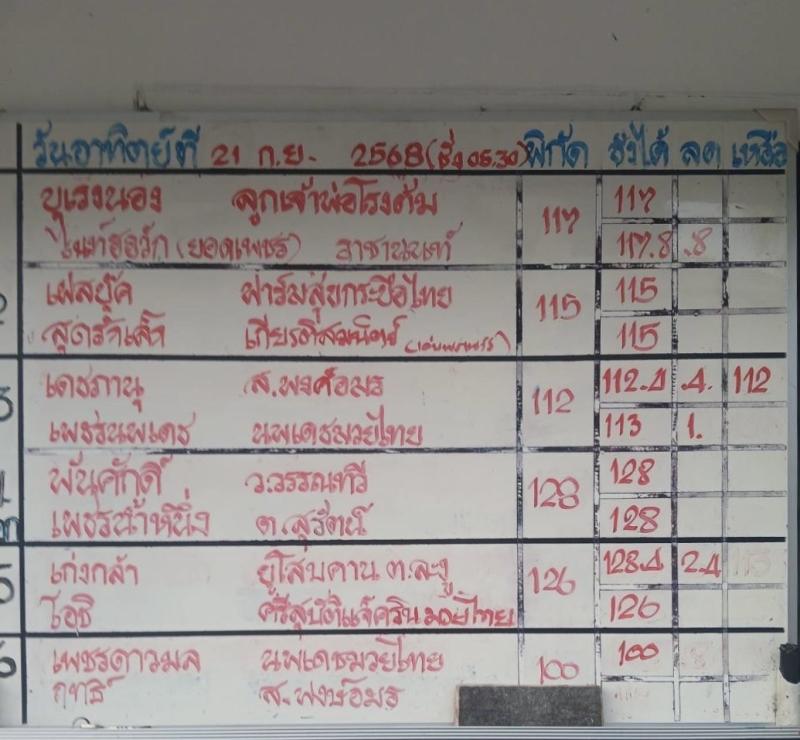 วันอาทิตย์ที่ 21 ก.ย. 2568 (ชั่ง 05.30) พิกัด ชั่งได้ ลด เหลือ
บูเร่งนอง ลูกเจ้าพ่อโรงต้ม 117 117
(ยอดเพชร) ราชานนท์ 117.8 .8
เฝสบุ๊ค ฟาร์มสุขกระบือไทย 115 115
สุดร้าเส้า เกียรติสมนึกร์ 115
3 เดชภานุ ส.พงศ์อมร 112 112.4 .4 112
เพชรนพเดช นพเดชมวยไทย 113 1.
พันศักดิ์ ว.วรรณทวี 128 128
เพชรน้ำหนึ่ง ต.สุรัตน์ 128
5 เก่งกล้า ยูโสบคาน ต.ละงู 126 128.4 2.4
โอชิ ศรีสุบัติแจ๊ครินมวยไทย 126
6 เพชรดาวมล นพเดชมวยไทย 100 100
ฤทธิ์ ส.พงษ์อมร